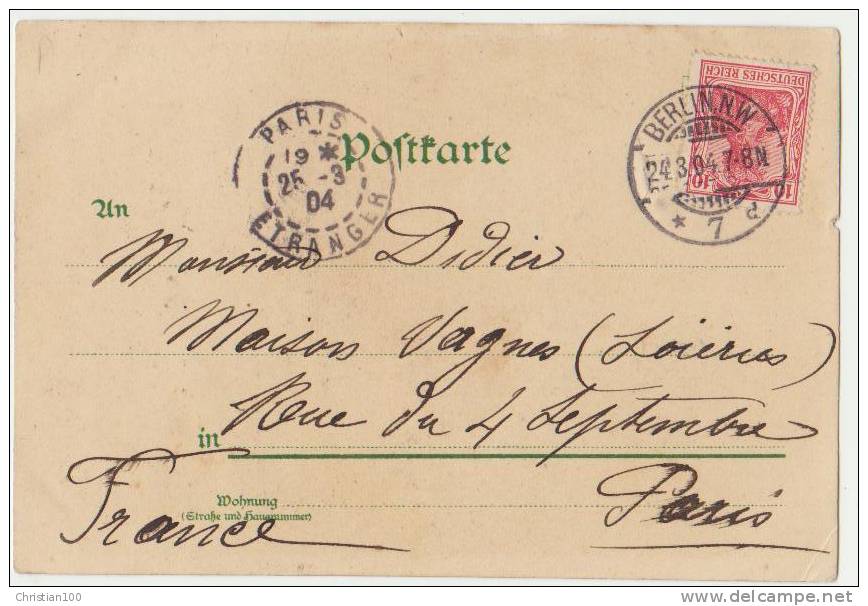 DEUTSCHES REICH
10
BERLIN.N.W
24.3.04.7-8N
* 7 d
PARIS
19 *
25 -3
04
ETRANGER
Postkarte
An
Monsieur Didier
Maison Vagnes (Soieries)
Rue du 4 Septembre
in
Paris
Wohnung
(Straße und Hausnummer)
France
Christian100
www.delcampe.net